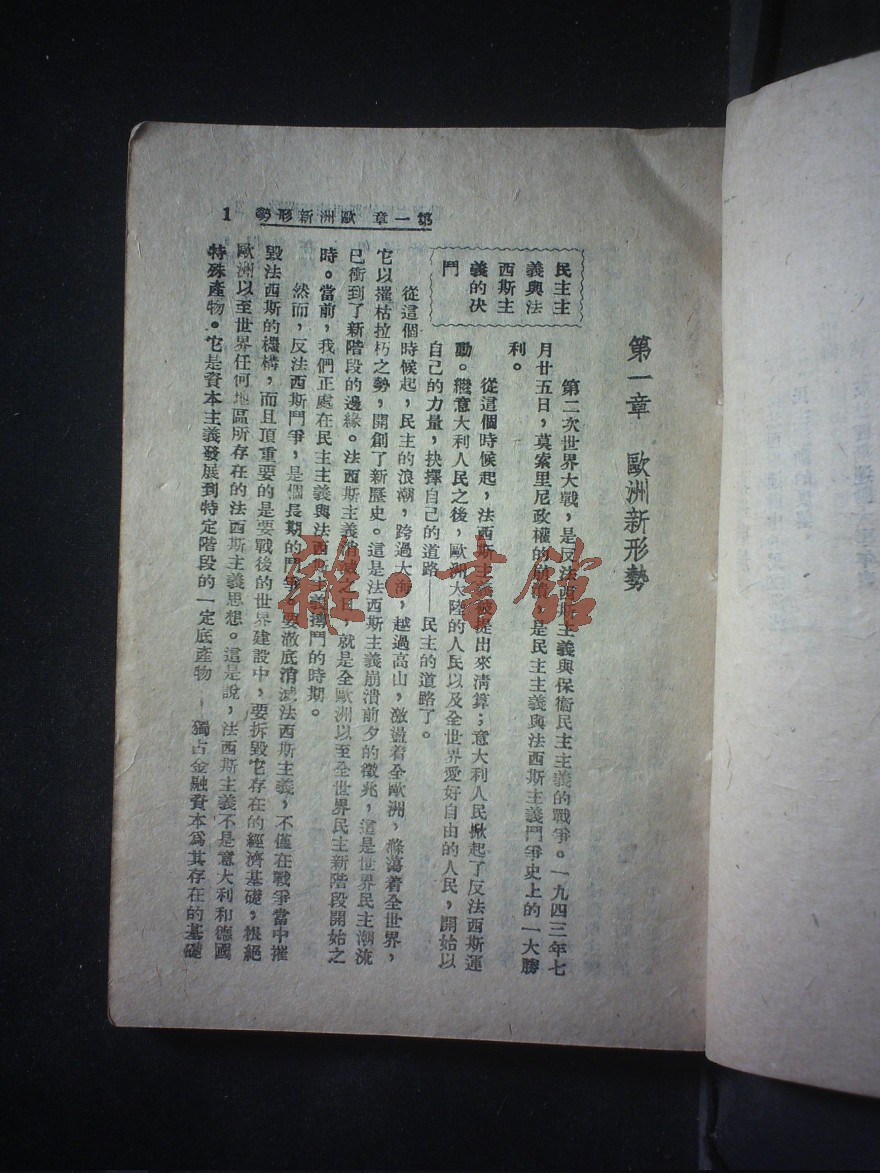 第一章 歐洲新形勢 1
第一章 歐洲新形勢
民主主
義與法
西斯主
義的决
鬥
第二次世界大戰，是反法西斯主義與保衞民主主義的戰爭。一九四三年七
月廿五日，莫索里尼政權的崩潰，是民主主義與法西斯主義鬥爭史上的一大勝
利。
從這個時候起，法西斯主義被提出來淸算；意大利人民掀起了反法西斯運
動。繼意大利人民之後，歐洲大陸的人民以及全世界愛好自由的人民，開始以
自己的力量，抉擇自己的道路——民主的道路了。
從這個時候起，民主的浪潮，跨過大海，越過高山，激盪着全歐洲，滌蕩着全世界，
它以摧枯拉朽之勢，開創了新歷史。這是法西斯主義崩潰前夕的徵兆，這是世界民主潮流
已衝到了新階段的邊緣。法西斯主義消滅之日，就是全歐洲以至全世界民主新階段開始之
時。當前，我們正處在民主主義與法西斯主義搏鬥的時期。
然而，反法西斯鬥爭，是個長期的鬥爭。要澈底消滅法西斯主義，不僅在戰爭當中摧
毀法西斯的機構，而且頂重要的是要戰後的世界建設中，要拆毀它存在的經濟基礎，根絕
歐洲以至世界任何地區所存在的法西斯主義思想。這是說，法西斯主義不是意大利和德國
特殊產物。它是資本主義發展到特定階段的一定底產物——獨占金融資本爲其存在的基礎
雜·書館